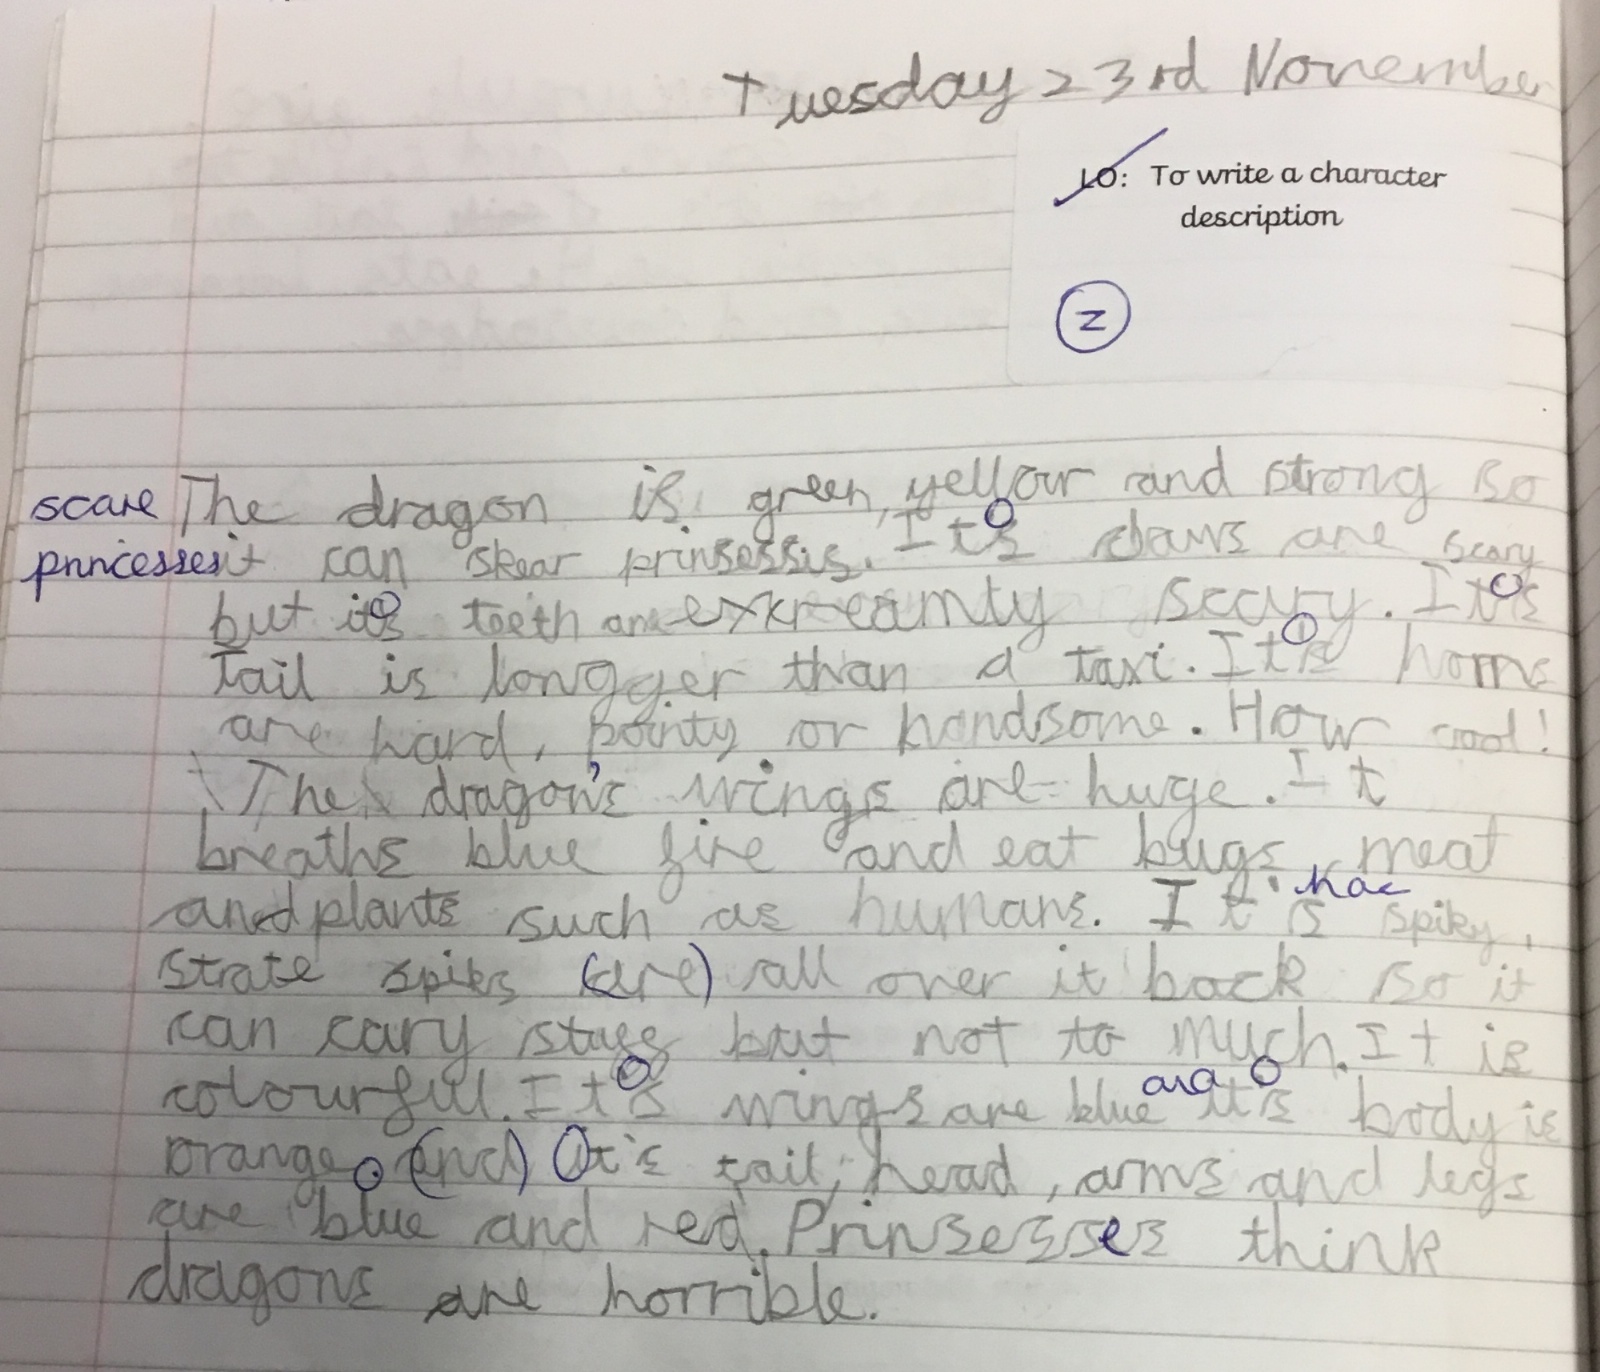 Tuesday 23rd November
LO: To write a character
description
Z
scare The dragon is green, yellow and strong so
princesses it can skear prinsessis. It's claws are scary
but it's teeth are extreamty scary. It's
tail is longger than a taxi. It's horns
are hard, pointy or handsome. How cool!
The dragon's wings are huge. It
breaths blue fire and eat bugs, meat
and plants such as humans. It is has spiky,
strate spikes (are) all over it back so it
can cary stuff but not to much. It is
colourfull. It's wings are blue and it's body is
orange. (and) It's tail, head, arms and legs
are blue and red. Prinsesses think
dragons are horrible.